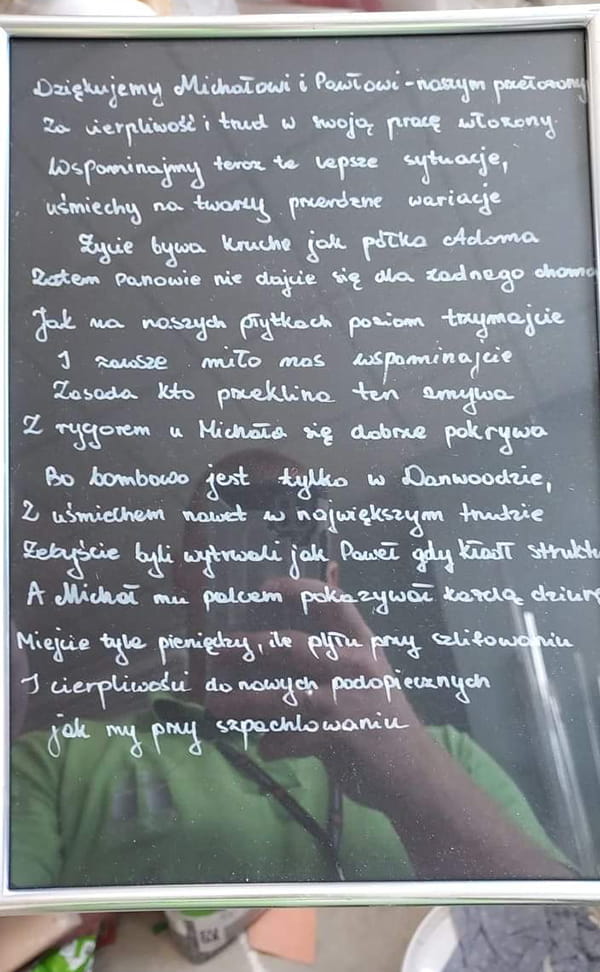 Dziękujemy Michałowi i Pawłowi - naszym przełożony
Za cierpliwość i trud w swoją pracę włożony.
Wspominajmy teraz te lepsze sytuacje,
uśmiechy na twarzy przeróżne wariacje
Życie bywa kruche jak półka Adama
Zatem Panowie nie dajcie się dla żadnego chama
Jak na naszych płytkach poziom trzymajcie
I zawsze miło nas wspominajcie
Zasada kto przeklina ten zmywa
Z rygorem u Michała się dobrze pokrywa
Bo bombowo jest tylko w Danwoodzie,
Z uśmiechem nawet w największym trudzie
Żebyście byli wytrwali jak Paweł gdy kładł struktu
A Michał mu palcem pokazywał każdą dziurę
Miejcie tyle pieniędzy, ile pyłu przy szlifowaniu
I cierpliwości do nowych podopiecznych
jak my przy szpachlowaniu